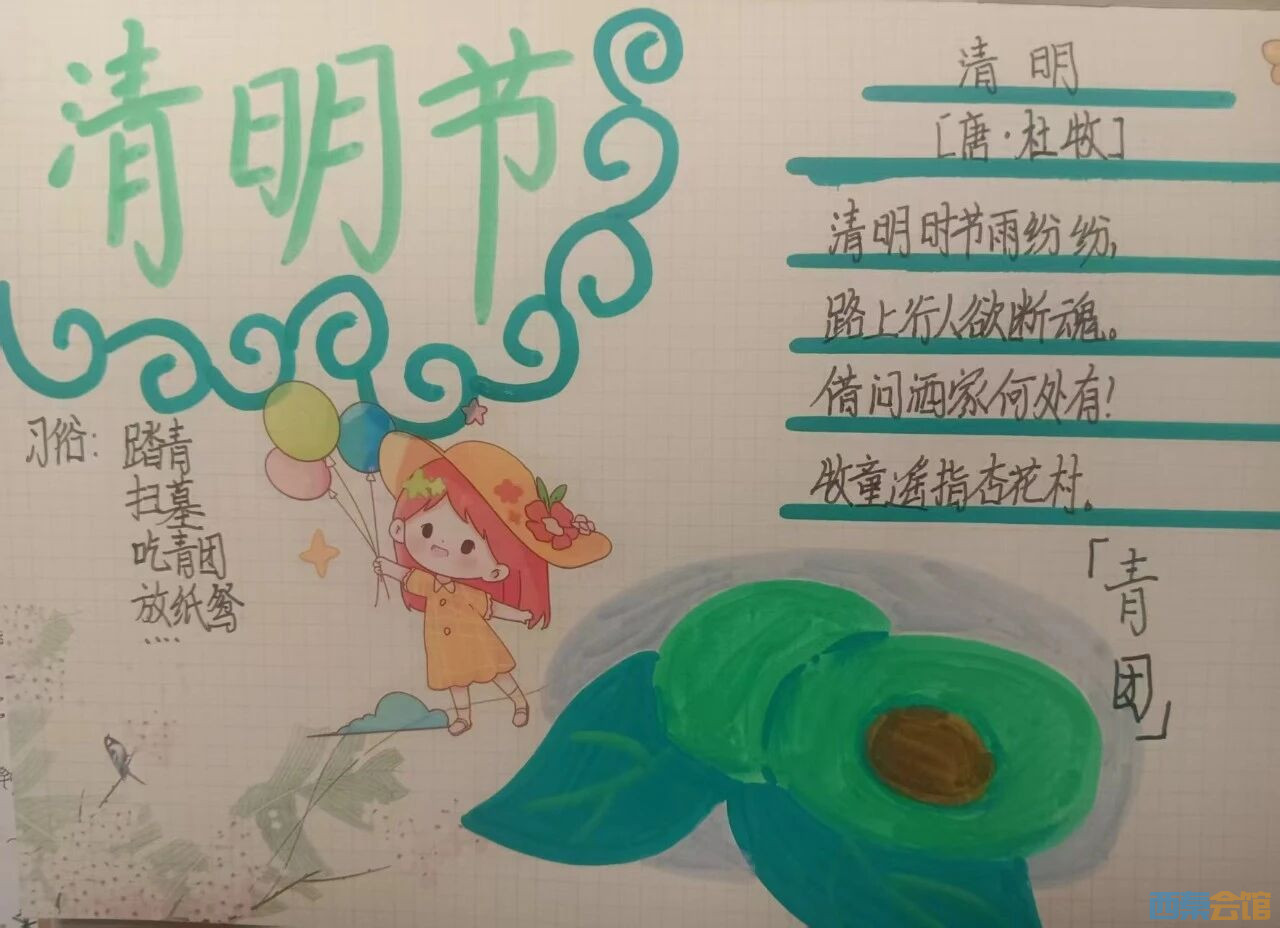 清明节
习俗：踏青
扫墓
吃青团
放纸鸳
....
清 明
[唐·杜牧]
清明时节雨纷纷,
路上行人欲断魂。
借问洒家何处有!
牧童遥指杏花村。
「青团」
会馆